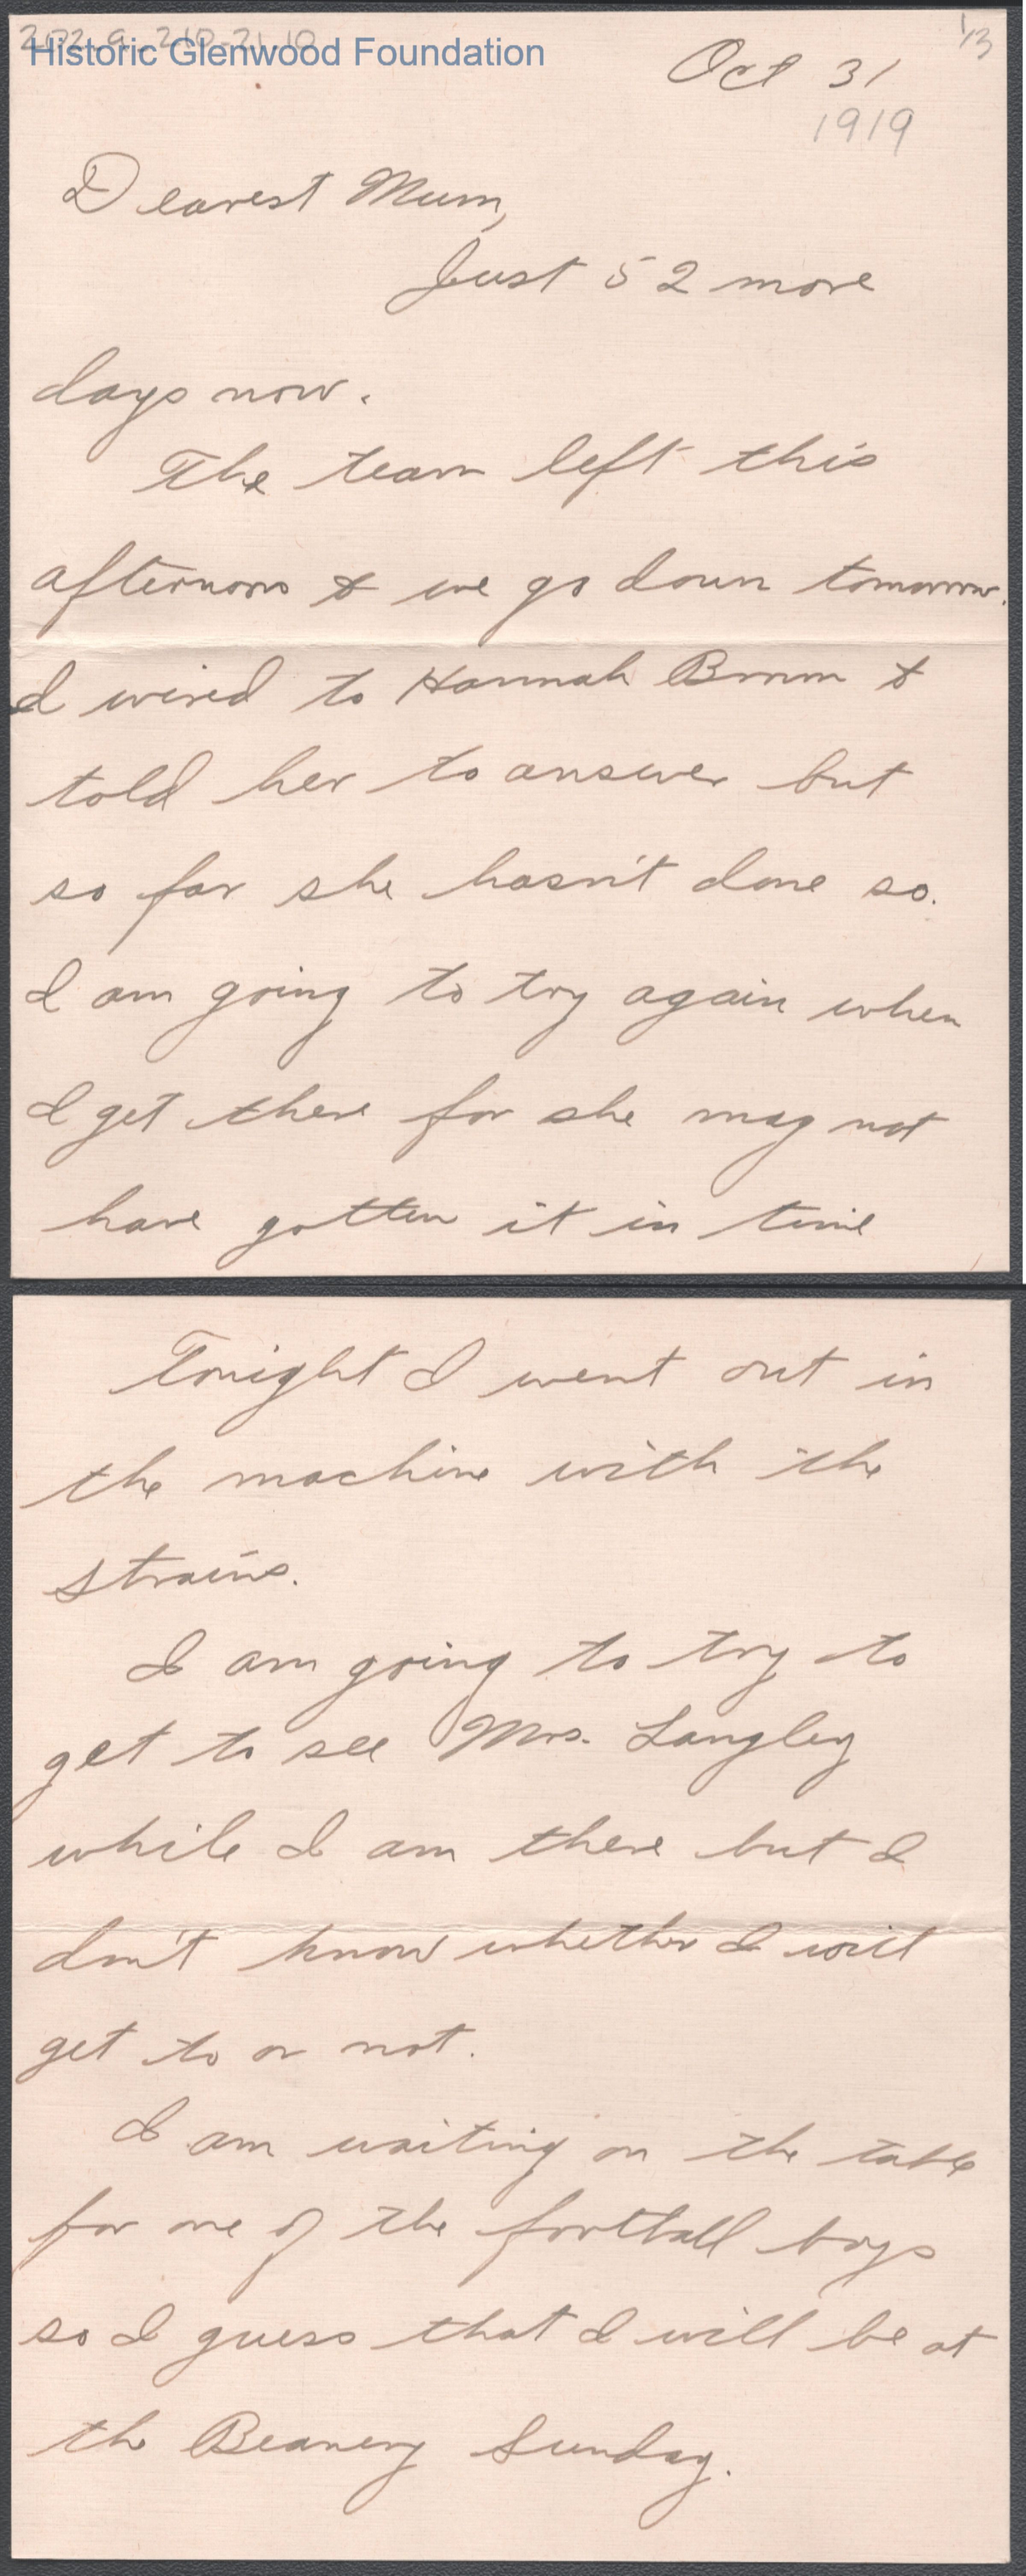 202.9.210-21.10
Historic Glenwood Foundation
1/3
Oct 31
1919
Dearest Mum,
Just 52 more
days now.
The team left this
afternoon & we go down tomorrow.
I wired to Hannah Brown &
told her to answer but
so far she hasn't done so.
I am going to try again when
I get there for she may not
have gotten it in time
Tonight I went out in
the machine with the
Strains.
I am going to try to
get to see Mrs. Langley
while I am there but I
don't know whether I will
get to or not.
I am waiting on the table
for one of the football boys
so I guess that I will be at
the Beanery Sunday.